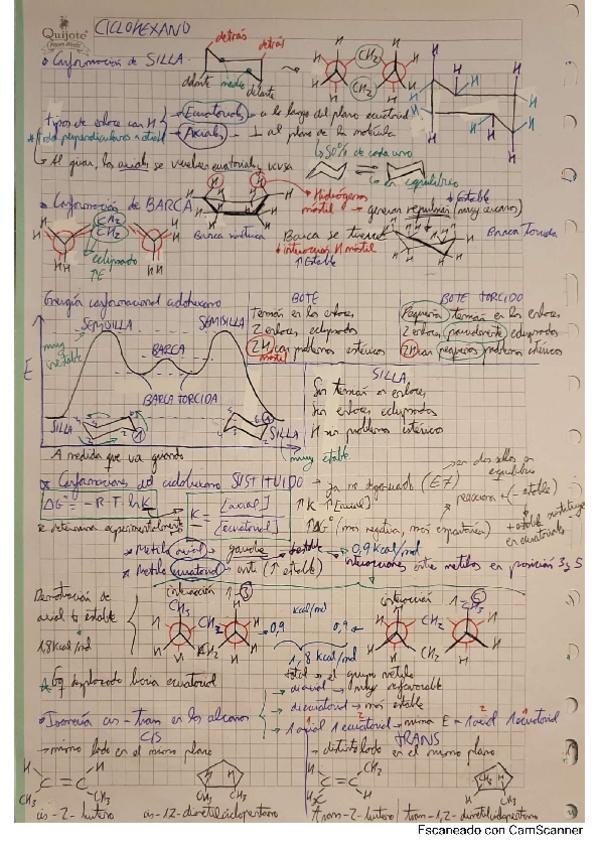 Quijote
CICLOHEXANO
• Conformación de SILLA
detrás
detrás
delante
medio
delante
CH2
CH2
tipos de enlace con H
Ecuatorial → a lo largo del plano ecuatorial
Axial → ⊥ al plano de la molécula
50% de cada uno
Al girar, los axiales se vuelven ecuatoriales y vcvsa
en equilibrio
• Conformación de BARCA
Hidrógenos mástil → generan repulsión (muy cercanos)
CH2
CH2
eclipsado
↑E
Barca
Barca se tuerce
↓ interacción H mástil
↑ Estable
Barca Torcida
Energía conformacional ciclohexano
SEMISILLA
SEMISILLA
muy inestable
BARCA
BARCA TORCIDA
E
SILLA
SILLA
A medida que va girando
muy estable
BOTE
Tensión en los enlaces
2 enlaces eclipsados
2H con problemas estéricos
mástil
BOTE TORCIDO
Pequeña tensión en los enlaces
2 enlaces parcialmente eclipsados
2H con pequeños problemas estéricos
SILLA
Sin tensión en enlaces
Sin enlaces eclipsados
H sin problemas estéricos
Conformaciones del ciclohexano SUSTITUIDO
en dos sillas en equilibrio
ΔG° = -R·T·lnK
K = [axial] / [ecuatorial]
Se determina experimentalmente
↑K ↑[axial]
↑ΔG° (más negativa, más espontánea)
+ estable sustituyente en ecuatorial
* Metilo axial → gauche
0,9 kcal/mol
* Metilo ecuatorial → anti (↑ estable)
interacciones entre metilos en posición 3 y 5
Disminución de axial to estable
1,8 kcal/mol
interacción 1-3
interacción 1-5
CH3
CH2
CH2
kcal/mol
0,9
0,9
1,8 kcal/mol
total → el grupo metilo
CH2
CH2
Eq desplazado hacia ecuatorial
• Isomería cis-trans en los alcanos
diaxial → muy desfavorable
diecuatorial → más estable
1 axial 1 ecuatorial → misma E = 1 axial 1 ecuatorial
CIS
→ mismo lado en el mismo plano
TRANS
→ distinto lado en el mismo plano
H
H
C=C
CH3
CH3
cis-2-buteno
CH3
CH3
cis-1,2-dimetilciclopentano
H
CH3
C=C
H3C
H
trans-2-buteno
CH3
trans-1,2-dimetilciclopentano
Escaneado con CamScanner